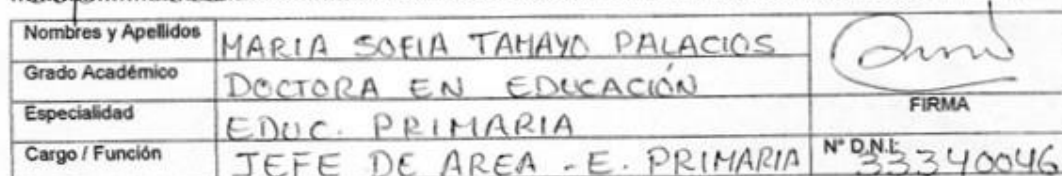 Nombres y Apellidos MARIA SOFIA TAMAYO PALACIOS
Grado Académico DOCTORA EN EDUCACIÓN
FIRMA
Especialidad EDUC. PRIMARIA
Cargo / Función JEFE DE AREA - E. PRIMARIA N° D.N.I: 33340046